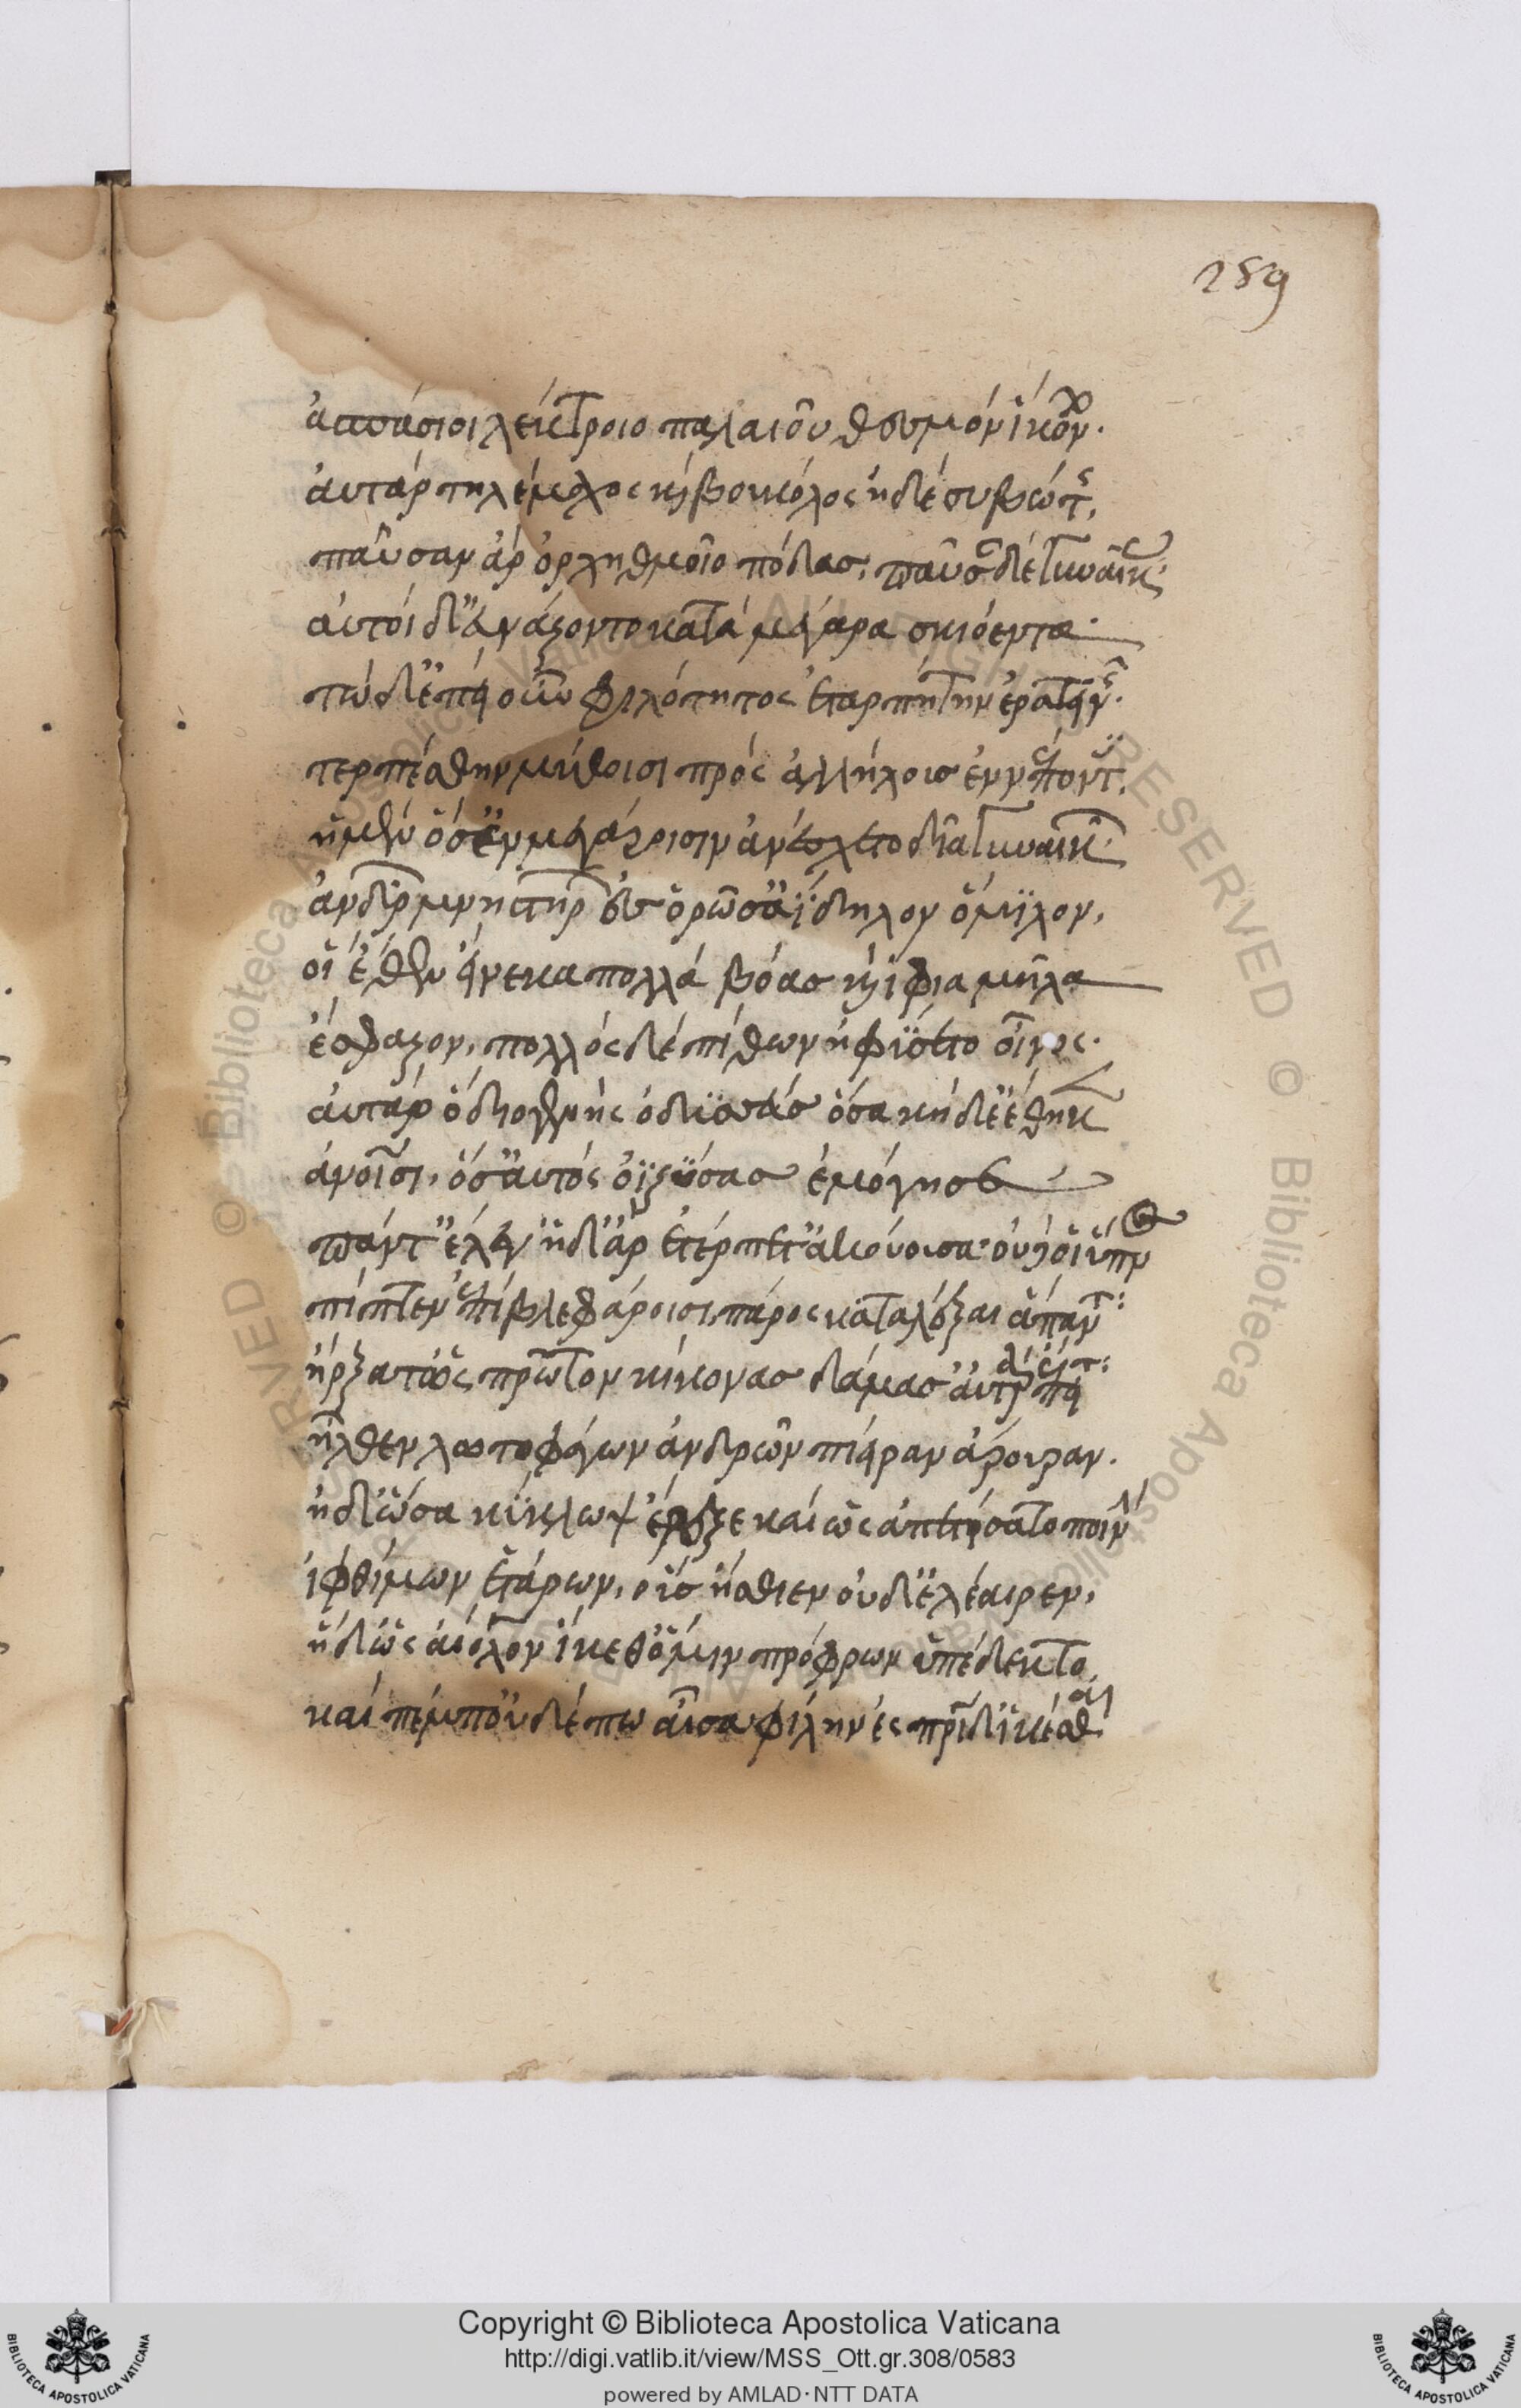 289
ἀσπάσιοι λέκτροιο παλαιοῦ θεσμὸν ἵκοντο·
αὐτὰρ τηλέμαχος καὶ βουκόλος ἠδὲ συβώτης,
παῦσαν ἄρ ὀρχηθμοῖο πόδας, παῦσαν δὲ γυναῖκας·
αὐτοὶ δ' ἐυνάζοντο κατὰ μέγαρα σκιόεντα·
τὼ δ' ἐπεὶ οὖν φιλότητος ἐταρπήτην ἐρατεινῆς·
τερπέσθην μύθοισι πρὸς ἀλλήλους ἐνέποντες,
ἡ μὲν ὅσ' ἐν μεγάροισιν ἀνέσχετο δῖα γυναικῶν
ἀνδρῶν μνηστήρων ἐσορῶσ' ἀΐδηλον ὅμιλον,
οἳ ἕθεν εἵνεκα πολλὰ βόας καὶ ἴφια μῆλα
ἔσφαζον, πολλὸς δὲ πίθων ἠφύσσετο οἶνος·
αὐτὰρ ὁ διογενὴς ὀδυσσεὺς ὅσα κήδε' ἔθηκεν
ἀνοῖσι, ὅσ' αὐτὸς ὀϊζύσας ἐμόγησε
πάντ' ἔλεγεν ἡ δ' ἄρ ἐτέρπετ' ἀκούουσα· οὐδέ οἱ ὕπνος
πίπτεν ἐπὶ βλεφάροισι πάρος καταλέξαι ἅπαντα:
ἤρξατο δ' ὡς πρῶτον κίκονας δάμασ' αὐτὰρ ἔπειτα:
ἦλθεν λωτοφάγων ἀνδρῶν πίειραν ἄρουραν.
ἠδ' ὅσα κύκλωψ ἔρξε καὶ ὡς ἀπετίσατο ποινὴν
ἰφθίμων ἑτάρων, οὓς ἤσθιεν οὐδ' ἐλέαιρεν,
ἠδ' ὡς αἴολον ἵκεθ' ὅ μιν πρόφρων ὑπέδεκτο,
καὶ πέμπ' οὐδέ πω αἶσα φίλην ἐς πατρίδ' ἱκέσθαι
Copyright © Biblioteca Apostolica Vaticana
http://digi.vatlib.it/view/MSS_Ott.gr.308/0583
powered by AMLAD·NTT DATA